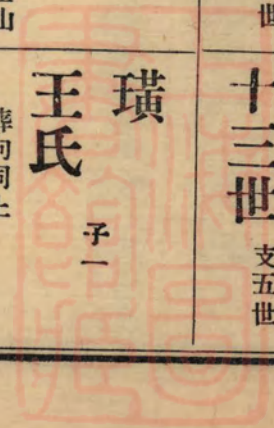 世
十三世 支五世
璜
王氏 子一
葬向同上
山